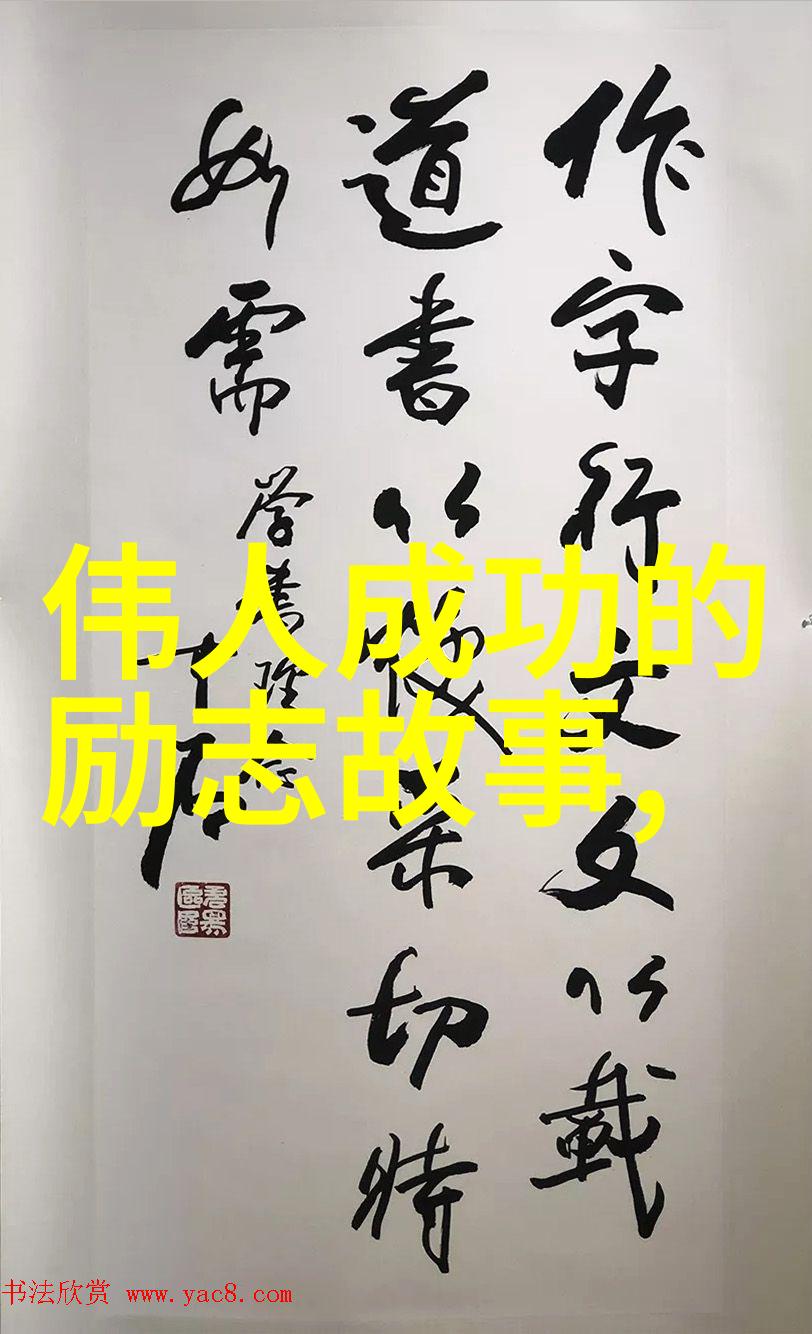 作字行文文以載
道書以煥采切時
如需
伟人成功的
励志故事,
书法欣赏 www.yac8.com